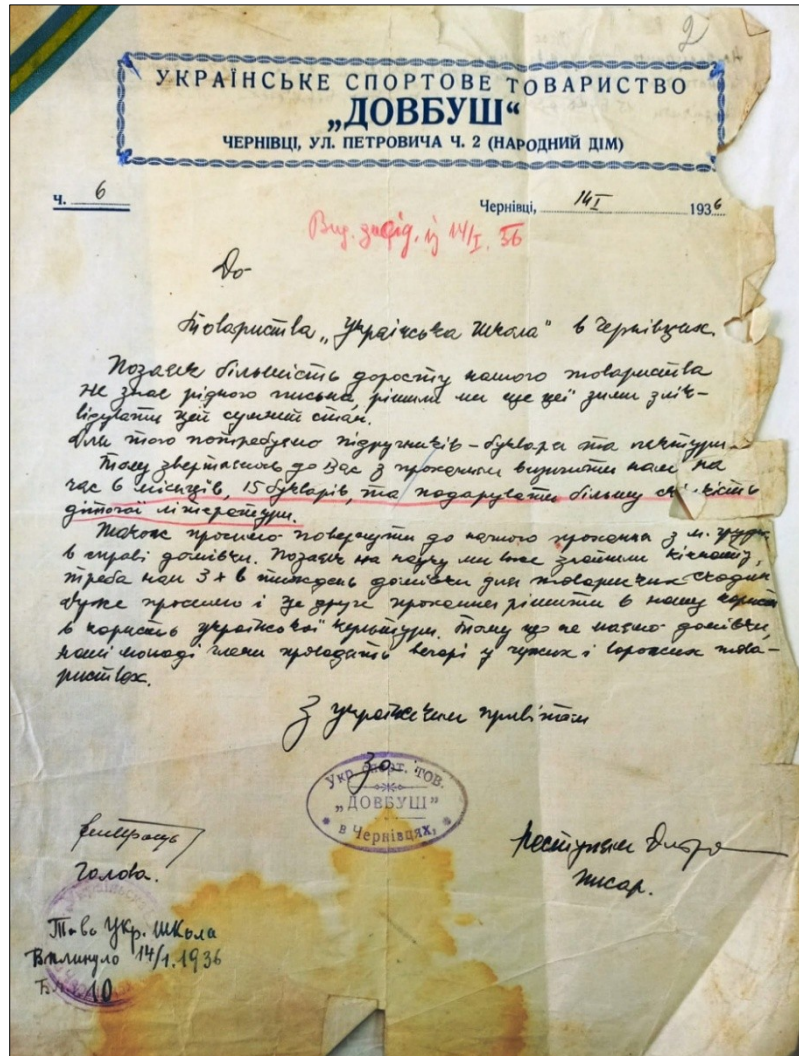 2
УКРАЇНСЬКЕ СПОРТОВЕ ТОВАРИСТВО
„ДОВБУШ“
ЧЕРНІВЦІ, УЛ. ПЕТРОВИЧА Ч. 2 (НАРОДНИЙ ДІМ)
Ч. 6
Чернівці, 14 I 1936
Вид. засід. із 14/I. 36
До
Товариства „Українська Школа" в Чернівцях.
Позаяк більшість доросту нашого товариства
не знає рідного письма, рішили ми ще цеї зими злік-
відувати цей сумний стан.
Для того потребуємо підручників – буквара та лєктури.
Тому звертаємось до Вас з проханням визичити нам на
час 6 місяців, 15 букварів, та подарувати більшу скількість
діточої літератури.
Також просимо повернути до нашого прохання з м. грудня
в справі домівки. Позаяк на науку ми вже знайшли кімнату,
треба нам 3 х в тиждень домівки для товариських сходин
Дуже просимо і це друге прохання рішити в нашу користь
в користь української культури. Тому що не маємо домівки,
наші молоді члени провадять вечорі у чужих і ворожих това-
риствах.
З українським привітом
За
Укр. спорт. тов.
„ДОВБУШ"
в Чернівцях.
Голова.
писар.
Т-во Укр. Школа
Вплинуло 14/1.1936
10